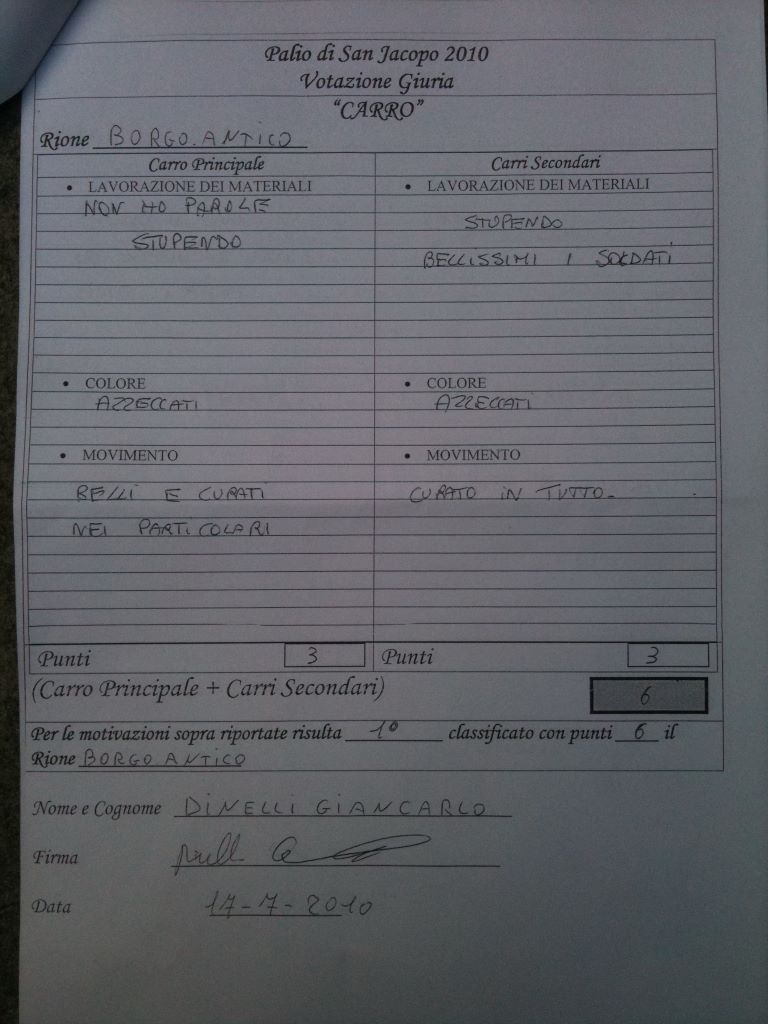 Palio di San Jacopo 2010
Votazione Giuria
“CARRO”
Rione BORGO.ANTICO
Carro Principale
• LAVORAZIONE DEI MATERIALI
NON HO PAROLE
STUPENDO
• COLORE
AZZECCATI
• MOVIMENTO
BELLI E CURATI
NEI PARTICOLARI
Punti 3
Carri Secondari
• LAVORAZIONE DEI MATERIALI
STUPENDO
BELLISSIMI I SOLDATI
• COLORE
AZZECCATI
• MOVIMENTO
CURATO IN TUTTO.
Punti 3
(Carro Principale + Carri Secondari) 6
Per le motivazioni sopra riportate risulta 1° classificato con punti 6 il
Rione BORGO.ANTICO
Nome e Cognome DINELLI GIANCARLO
Firma
Data 17-7-2010